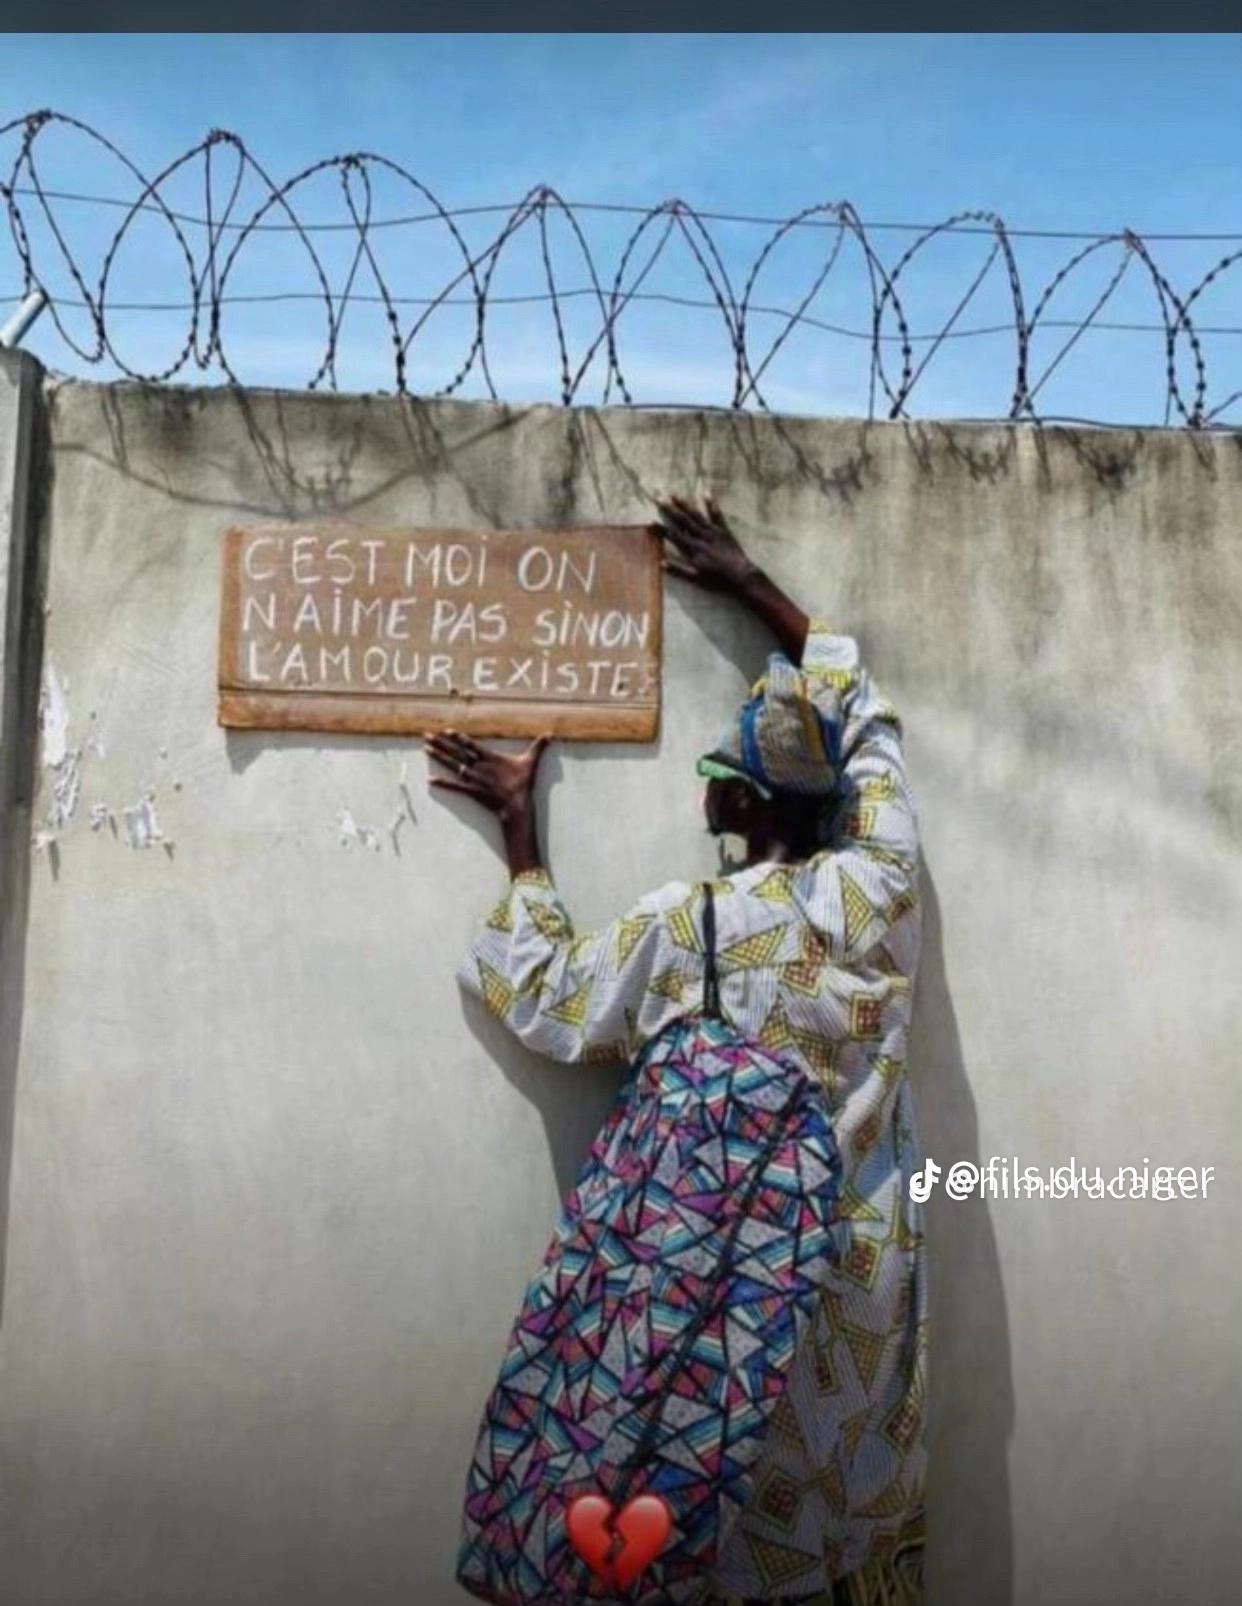 C'EST MOI ON
N AIME PAS SINON
L'AMOUR EXISTE
@fils.du.niger